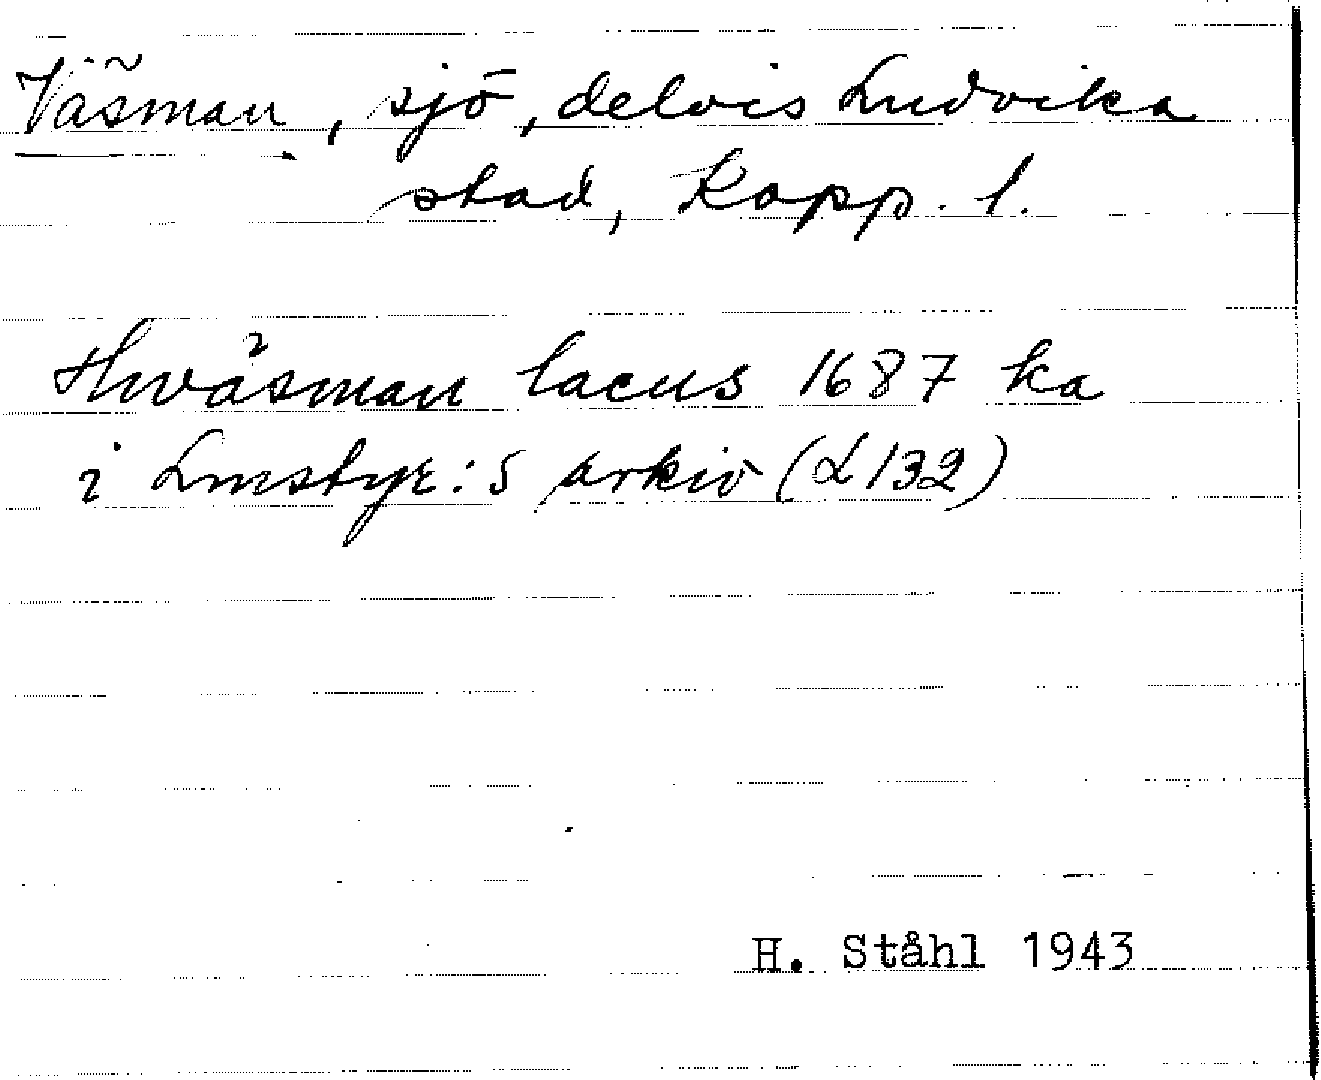 Väsman, sjö, delvis Ludvika
stad, Kopp. l.
Hwåsman lacus 1687 ka
i Lmstyr:s arkiv (L 132)
H. Ståhl 1943